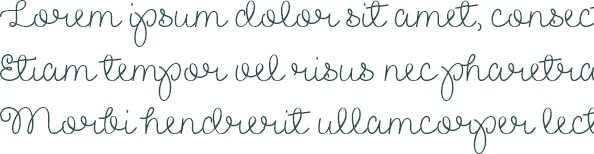 Lorem ipsum dolor sit amet, consect
Etiam tempor vel risus nec pharetra
Morbi hendrerit ullamcorper lect